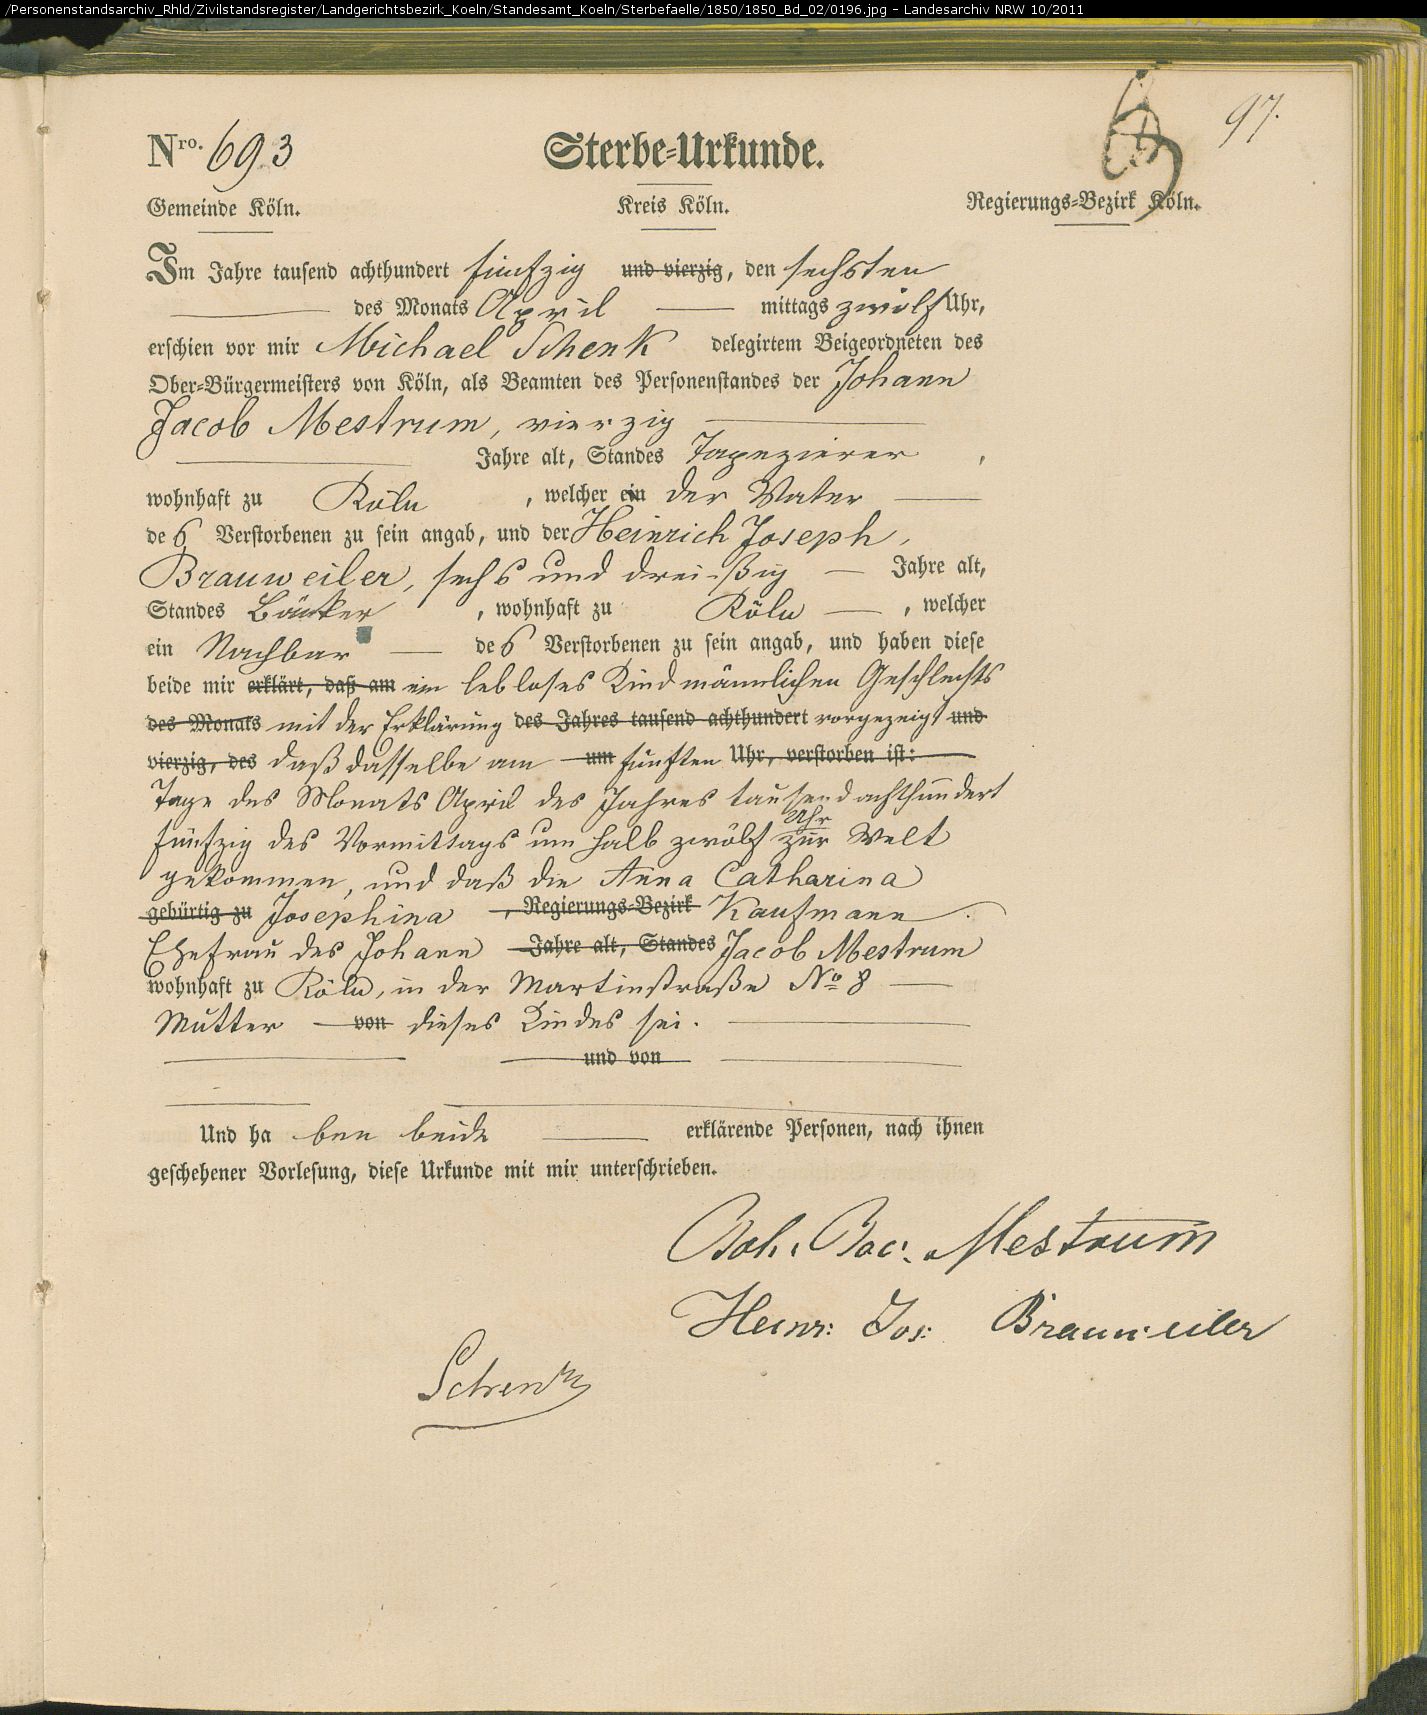 /Personenstandsarchiv_Rhld/Zivilstandsregister/Landgerichtsbezirk_Koeln/Standesamt_Koeln/Sterbefaelle/1850/1850_Bd_02/0196.jpg - Landesarchiv NRW 10/2011
97.
Nro. 693 Sterbe-Urkunde.
Gemeinde Köln. Kreis Köln. Regierungs-Bezirk Köln.
Im Jahre tausend achthundert fünfzig und vierzig, den sechsten
des Monats April mittags zwölf Uhr,
erschien vor mir Michael Schenk delegirtem Beigeordneten des
Ober-Bürgermeisters von Köln, als Beamten des Personenstandes der Johann
Jacob Mestrum, vierzig
Jahre alt, Standes Tapezierer,
wohnhaft zu Köln, welcher ein der Vater
des Verstorbenen zu sein angab, und der Heinrich Joseph,
Brauweiler, sechs und dreißig Jahre alt,
Standes Bäcker, wohnhaft zu Köln, welcher
ein Nachbar des Verstorbenen zu sein angab, und haben diese
beide mir erklärt, daß am ein lebloses Kind männlichen Geschlechts
des Monats mit der Erklärung des Jahres tausend achthundert vorgezeigt und
vierzig, des daß dasselbe am um fünften Uhr, verstorben ist:
Tage des Monats April des Jahres tausend achthundert
Uhr
fünfzig des Vormittags um halb zwölf zur Welt
gekommen, und daß die Anna Catharina
gebürtig zu Josephina, Regierungs-Bezirk Kaufmann.
Ehefrau des Johann Jahre alt, Standes Jacob Mestrum
wohnhaft zu Köln, in der Martinstraße No 8
Mutter von dieses Kindes sei.
und von
Und haben beide erklärende Personen, nach ihnen
geschehener Vorlesung, diese Urkunde mit mir unterschrieben.
Joh. Jac. Mestrum
Heinr: Jos: Brauweiler
Schenk